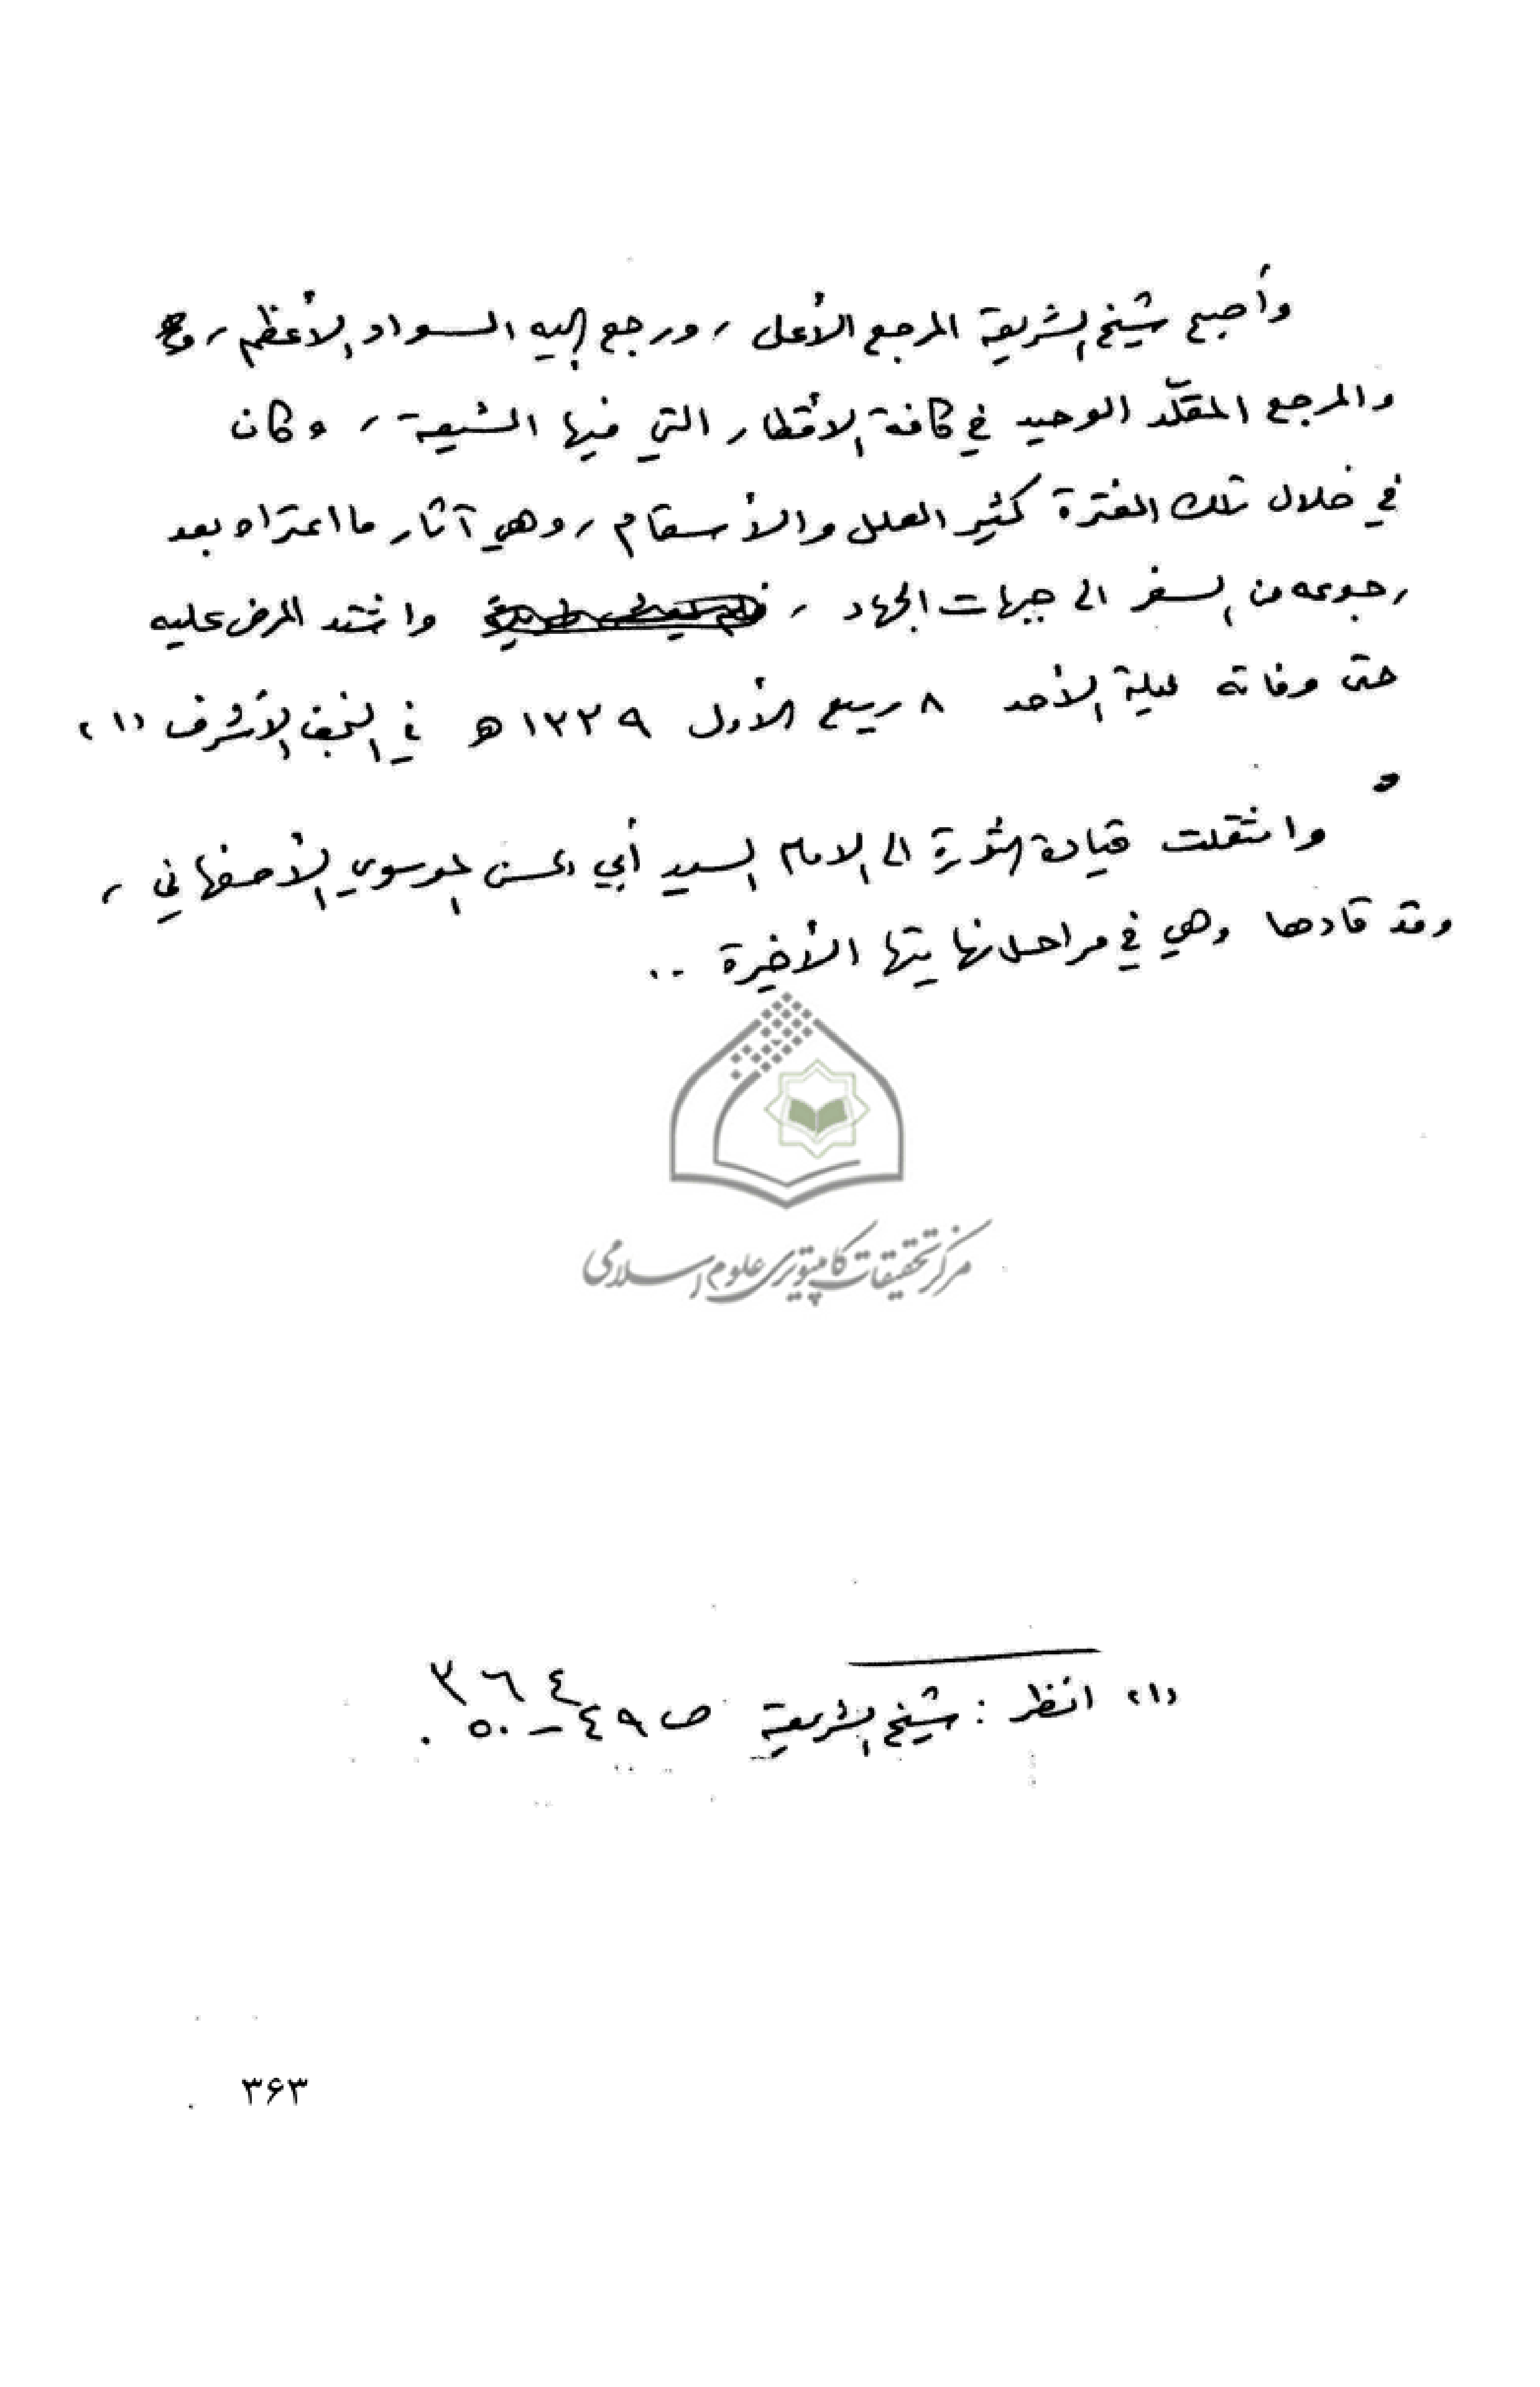 وأصبح شيخ الشريعة المرجع الأعلى ، ورجع إليه السواد الأعظم ،
والمرجع المقلّد الوحيد في كافة الأقطار التي فيها الشيعة ، وكان
في خلال تلك الفترة كثير العلل والأسقام ، وهي آثار ما اعتراه بعد
رجوعه من السفر الى جبهات الجهاد ، واشتد المرض عليه
حتى وفاته ليلة الأحد ٨ ربيع الأول ١٣٣٩ هـ في النجف الأشرف (١)
وانتقلت قيادة الثورة الى الامام السيد أبي الحسن الموسوي الأصفهاني ،
وقد قادها وهي في مراحل نهايتها الأخيرة ..
مرکز تحقیقات کامپیوتری علوم اسلامی
(١) انظر : شيخ الشريعة ص ٤٩ – ٥٠ .
٣٦٤
۳۶۳